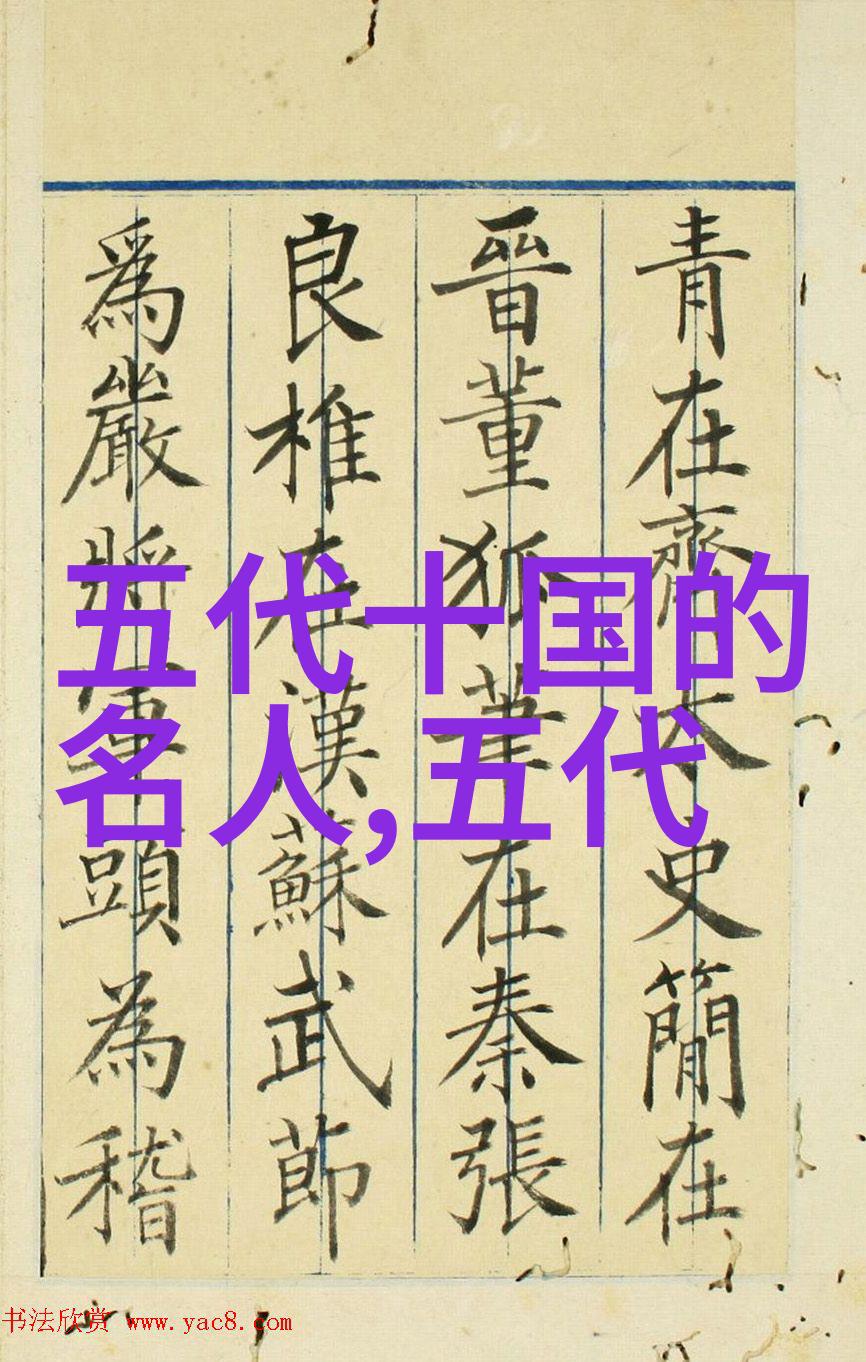 青在齊太史簡在
晉董狐筆在秦張
良椎在漢蘇武節
為嚴將軍頭為嵇
五代十国的
名人,五代
书法欣赏 www.yac8.com